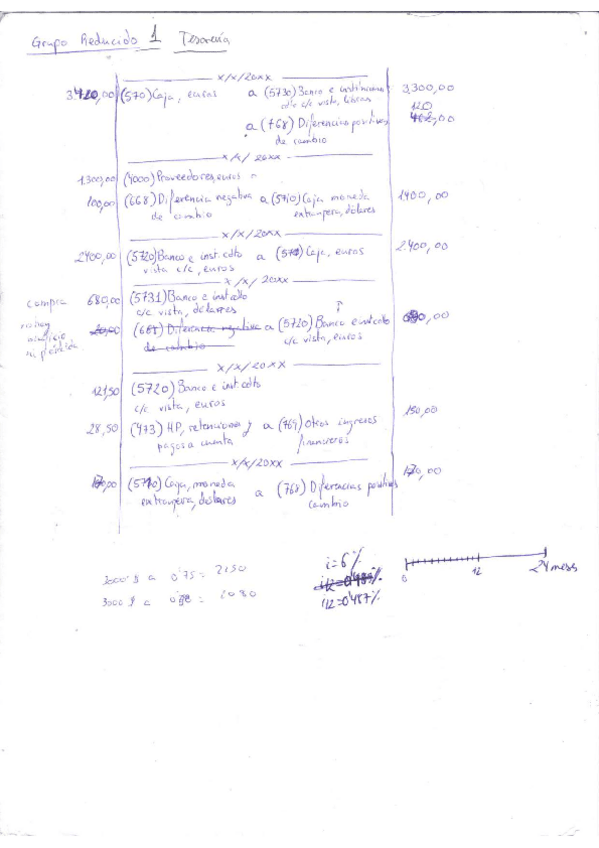 Grupo Reducido 1 Tesorería
x/x/20xx
3.420,00 (570) Caja, euros a (5730) Banco e instituciones 3.300,00
cdto c/c vista, libras 120
a (768) Diferencias positivas
de cambio
x/x/ 20xx
1.300,00 (4000) Proveedores, euros
100,00 (668) Diferencia negativa a (5710) Caja moneda 1400,00
de cambio extranjera, dólares
x/x/20xx
2400,00 (5720) Banco e inst. cdto a (570) Caja, euros 2.400,00
vista c/c, euros
x/x/ 20xx
compra 680,00 (5731) Banco e inst cdto
c/c vista, dólares
no hay (668) Diferencia negativa a (5720) Banco e inst cdto 680,00
beneficio de cambio c/c vista, euros
ni pérdida
x/x/20xx
121,50 (5720) Banco e inst cdto
c/c vista, euros
28,50 (473) HP, retenciones y a (769) Otros ingresos 150,00
pagos a cuenta financieros
x/x/20xx
(5710) Caja, moneda a (768) Diferencias positivas
extranjera, dólares cambio
3000 $ a 0'75 = 2250
3000 $ a
i=6%
i12=0'487%
0 12 24 meses